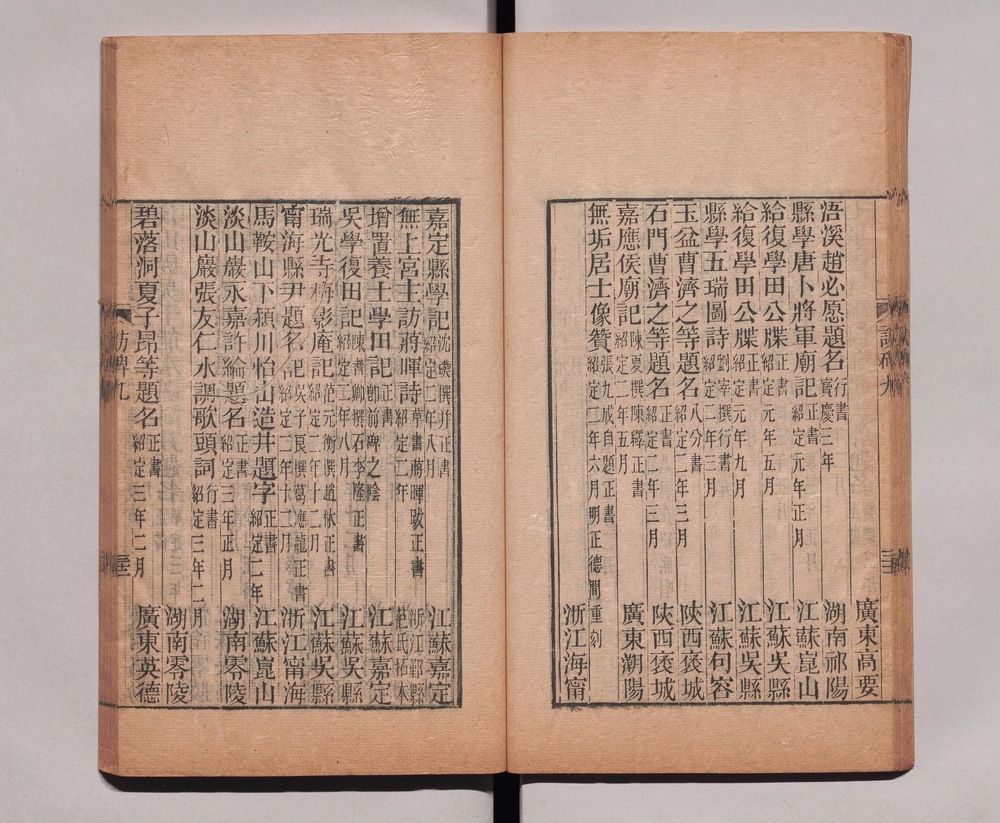 廣東高要
浯溪趙必愿題名 行書 寶慶三年 湖南祁陽
縣學唐卜將軍廟記 正書 紹定元年正月 江蘇崑山
給復學田公牒 正書 紹定元年五月 江蘇吳縣
給復學田公牒 正書 紹定元年九月 江蘇吳縣
縣學五瑞圖詩 劉宰撰行書 紹定二年三月 江蘇句容
玉盆曹濟之等題名 八分書 紹定二年三月 陝西褒城
石門曹濟之等題名 正書 紹定二年三月 陝西褒城
嘉應侯廟記 陳夏撰陳繹正書 紹定二年五月 廣東潮陽
無垢居士像贊 張九成自題正書 紹定二年六月明正德間重刻
浙江海甯
嘉定縣學記 沈 撰并正書 紹定二年八月 江蘇嘉定
無上宮主訪蔣暉詩 草書蔣暉跋正書 紹定二年 浙江鄞縣范氏拓本
增置養士學田記 正書 卽前碑之陰 江蘇嘉定
吳學復田記 陳耆卿撰石李隆正書 紹定二年八月 江蘇吳縣
瑞光寺梅影庵記 范元衡撰趙 正書 紹定二年十二月 江蘇吳縣
甯海縣尹題名記 吳子良撰葛應龍正書 紹定二年十二月 浙江甯海
馬鞍山下潁川怡山造井題字 正書 紹定二年 江蘇崑山
淡山巖永嘉許綸題名 正書 紹定三年正月 湖南零陵
淡山巖張友仁水調歌頭詞 行書 紹定三年二月 湖南零陵
碧落洞夏子昂等題名 正書 紹定三年二月 廣東英德
訪碑九